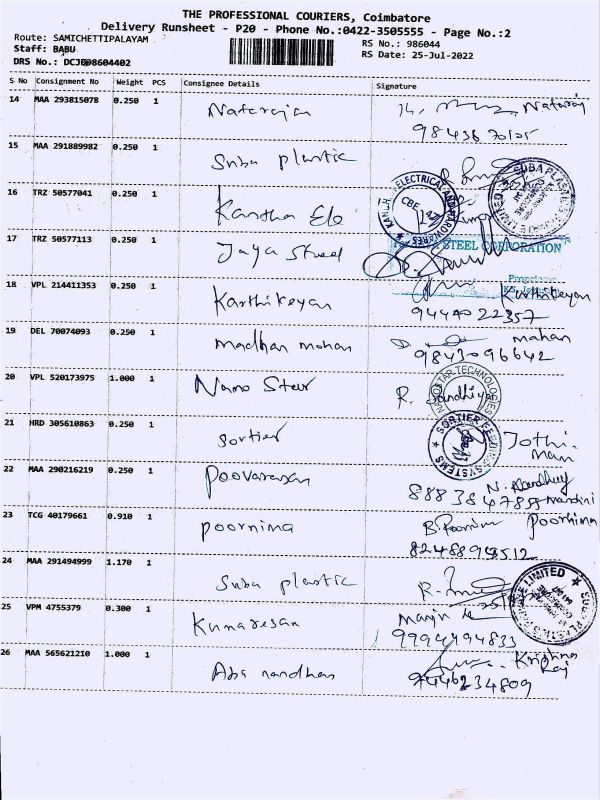 THE PROFESSIONAL COURIERS, Coimbatore
Delivery Runsheet - P20 - Phone No.:0422-3505555 - Page No.:2
Route: SAMICHETTIPALAYAM
RS No.: 986044
Staff: BABU
RS Date: 25-Jul-2022
DRS No.:
S No Consignment No Weight PCS Consignee Details Signature
14 MAA 293815078 0.250 1 Natarajan 14, Nataraj
15 MAA 291889982 0.250 1 Suba plastic
16 TRZ 50577041 0.250 1 Kantha Ele
17 TRZ 50577113 0.250 1 Jaya Steel
STEEL CORPORATION
18 VPL 214411353 0.250 1 Karthikeyan Karthikeyan
9444022357
19 DEL 70074093 0.250 1 madhan mohan mahan
9843096642
20 VPL 520173975 1.000 1 Nano Star R. Sandhiya
NANO STAR TECHNOLOGIES
21 HRD 305610863 0.250 1 Sortier Jothi
mani
SORTIER FEEDING SYSTEMS
22 MAA 290216219 0.250 1 Poovarasan N. Nandhini
23 TCG 40179661 0.910 1 Poornima B. Poornima Poornima
24 MAA 291494999 1.170 1 Suba plastic
25 VPM 4755379 0.300 1 Kumaresan
9994494833
26 MAA 565621210 1.000 1 Aba nandhan Krishna
Raj
9446234809